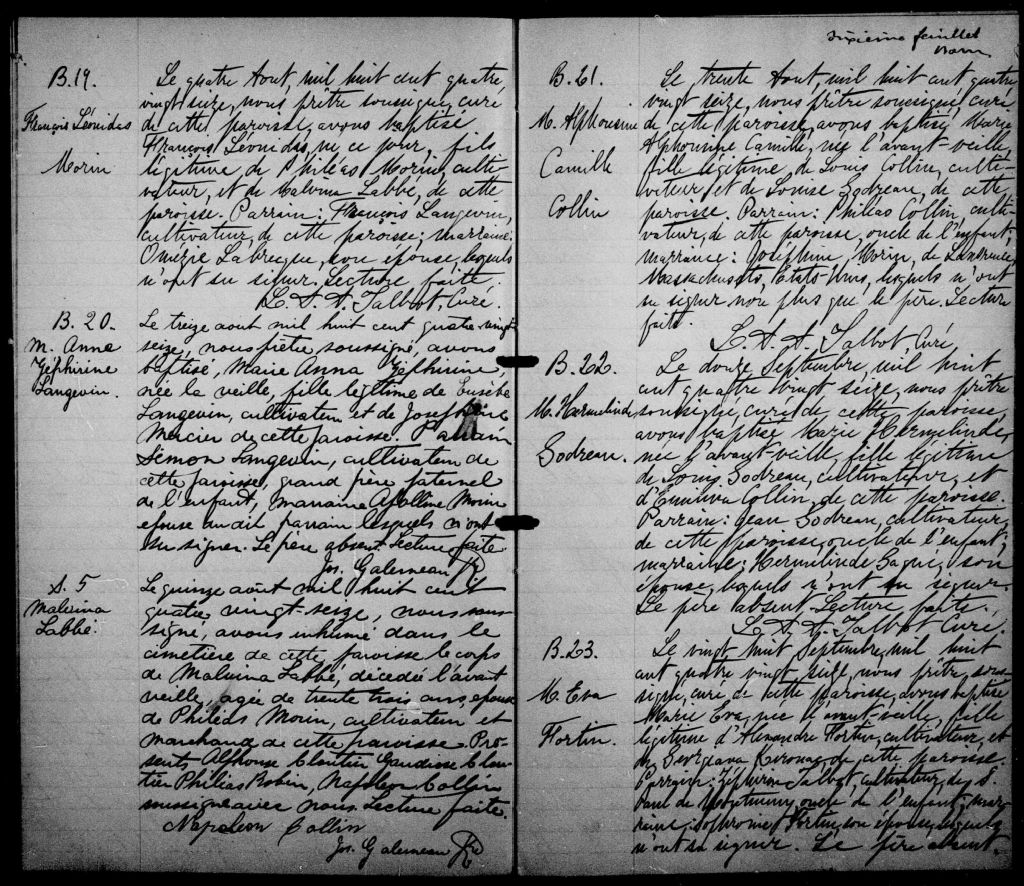 B.19.
François Léonidas
Morin
Le quatre Aout, mil huit cent quatre
vingt seize, nous prêtre soussigné, curé
de cette paroisse, avons baptisé
François Léonidas, né ce jour, fils
légitime de Philéas Morin, culti-
vateur, et de Malvina Labbé, de cette
paroisse. Parrain: François Langevin,
cultivateur, de cette paroisse; marraine:
Labrecque, son épouse, lesquels
n'ont su signer. Lecture faite.
L. A. A. Talbot, Curé.
B. 20.
M. Anna
Zéphirine
Langevin.
Le treize aout mil huit cent quatre vingt
seize, nous prêtre soussigné, avons
baptisé, Marie Anna Zéphirine,
née la veille, fille légitime de Eusèbe
Langevin, cultivateur et de Josephine
Mercier de cette paroisse. Parrain
Simon Langevin, cultivateur de
cette paroisse, grand père paternel
de l'enfant, marraine Apolline Morin
epouse du dit parrain lesquels n'ont
su signer. Le père absent. Lecture faite.
Jos. Galerneau Ptre
S. 5
Malvina
Labbé.
Le quinze août mil huit cent
quatre vingt-seize, nous sous-
signé, avons inhumé dans le
cimetière de cette paroisse le corps
de Malvina Labbé, décédée l'avant
veille, agée de trente trois ans, epouse
de Philéas Morin, cultivateur et
marchand de cette paroisse. Pré-
sents Alphonse Cloutier Gaudiose Clou-
tier Philias Robin, Napoléon Collin
soussigné avec nous. Lecture faite.
Napoleon Collin
Jos. Galerneau Ptre
Sixième feuillet
B.21.
M. Alphonsine
Camille
Collin
Le trente Aout, mil huit cent quatre
vingt seize, nous prêtre soussigné, curé
de cette paroisse, avons baptisé Marie
Alphonsine Camille, née l'avant-veille,
fille légitime de Louis Collin, culti-
vateur et de Louise Godreau, de cette
paroisse. Parrain: Philéas Collin, culti-
vateur, de cette paroisse, oncle de l'enfant;
marraine: Joséphine Morin, de Lawrence,
Massachusetts, Etats-Unis, lesquels n'ont
su signer non plus que le père. Lecture
faite.
L. A. A. Talbot Curé.
B.22.
M. Hermelinde
Godreau.
Le douze Septembre, mil huit
cent quattre vingt seize, nous prêtre
soussigné, curé de cette paroisse,
avons baptisé Marie Hermelinde,
née l'avant-veille, fille légitime
de Louis Godreau, cultivateur, et
Collin, de cette paroisse.
Parrain: Jean Godreau, cultivateur,
de cette paroisse, oncle de l'enfant;
marraine: Hermelinde Gagné, son
épouse, lesquels n'ont su signer.
Le père absent. Lecture faite.
L. A. A. Talbot Curé.
B.23.
M. Eva
Fortin.
Le vingt huit Septembre, mil huit
cent quatre vingt seize, nous prêtre, sous-
signé, curé de cette paroisse, avons baptisé
Marie Eva, née l'avant-veille, fille
légitime d'Alexandre Fortin, cultivateur, et
de Kirouac, de cette paroisse.
Parrain: Zéphirin Talbot, cultivateur, de S.
Paul de Montminy, oncle de l'enfant; mar-
raine: Fortin, son épouse, lesquels
n'ont su signer. Le père absent.